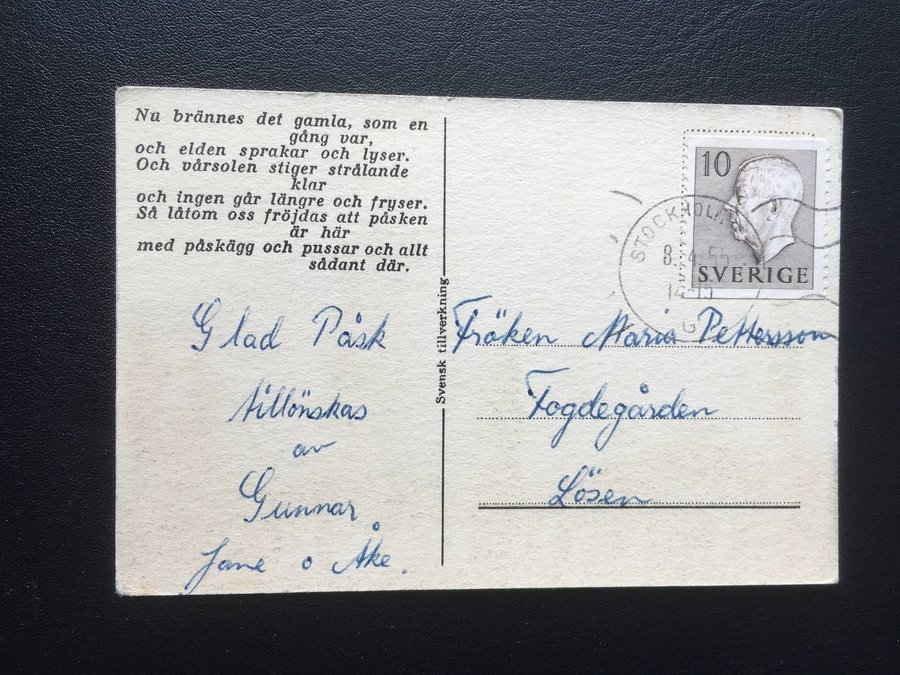 Nu brännes det gamla, som en
gång var,
och elden sprakar och lyser.
Och vårsolen stiger strålande
klar
och ingen går längre och fryser.
Så låtom oss fröjdas att påsken
är här
med påskägg och pussar och allt
sådant där.
Glad Påsk
tillönskas
av
Gunnar
Jane o Åke.
Svensk tillverkning
10
SVERIGE
STOCKHOLM
8.4.55
14-15
G
Fröken Maria Pettersson
Fogdegården
Lösen